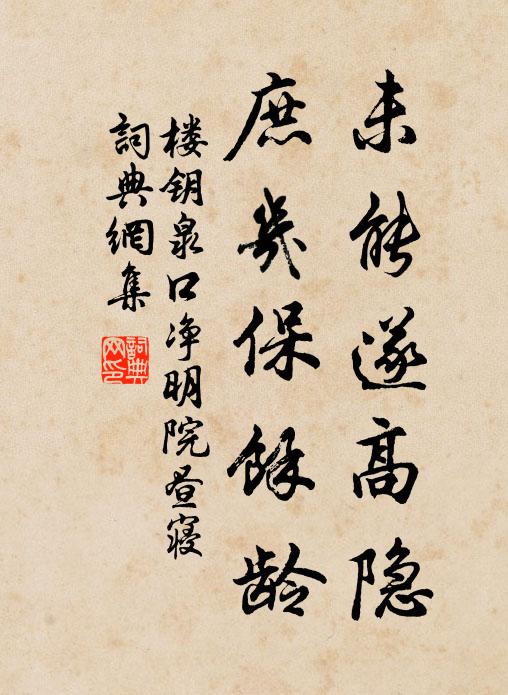 未能遂高隐
庶幾保餘龄
楼钥泉口净明院昼寝
詞典網集
詞典網印